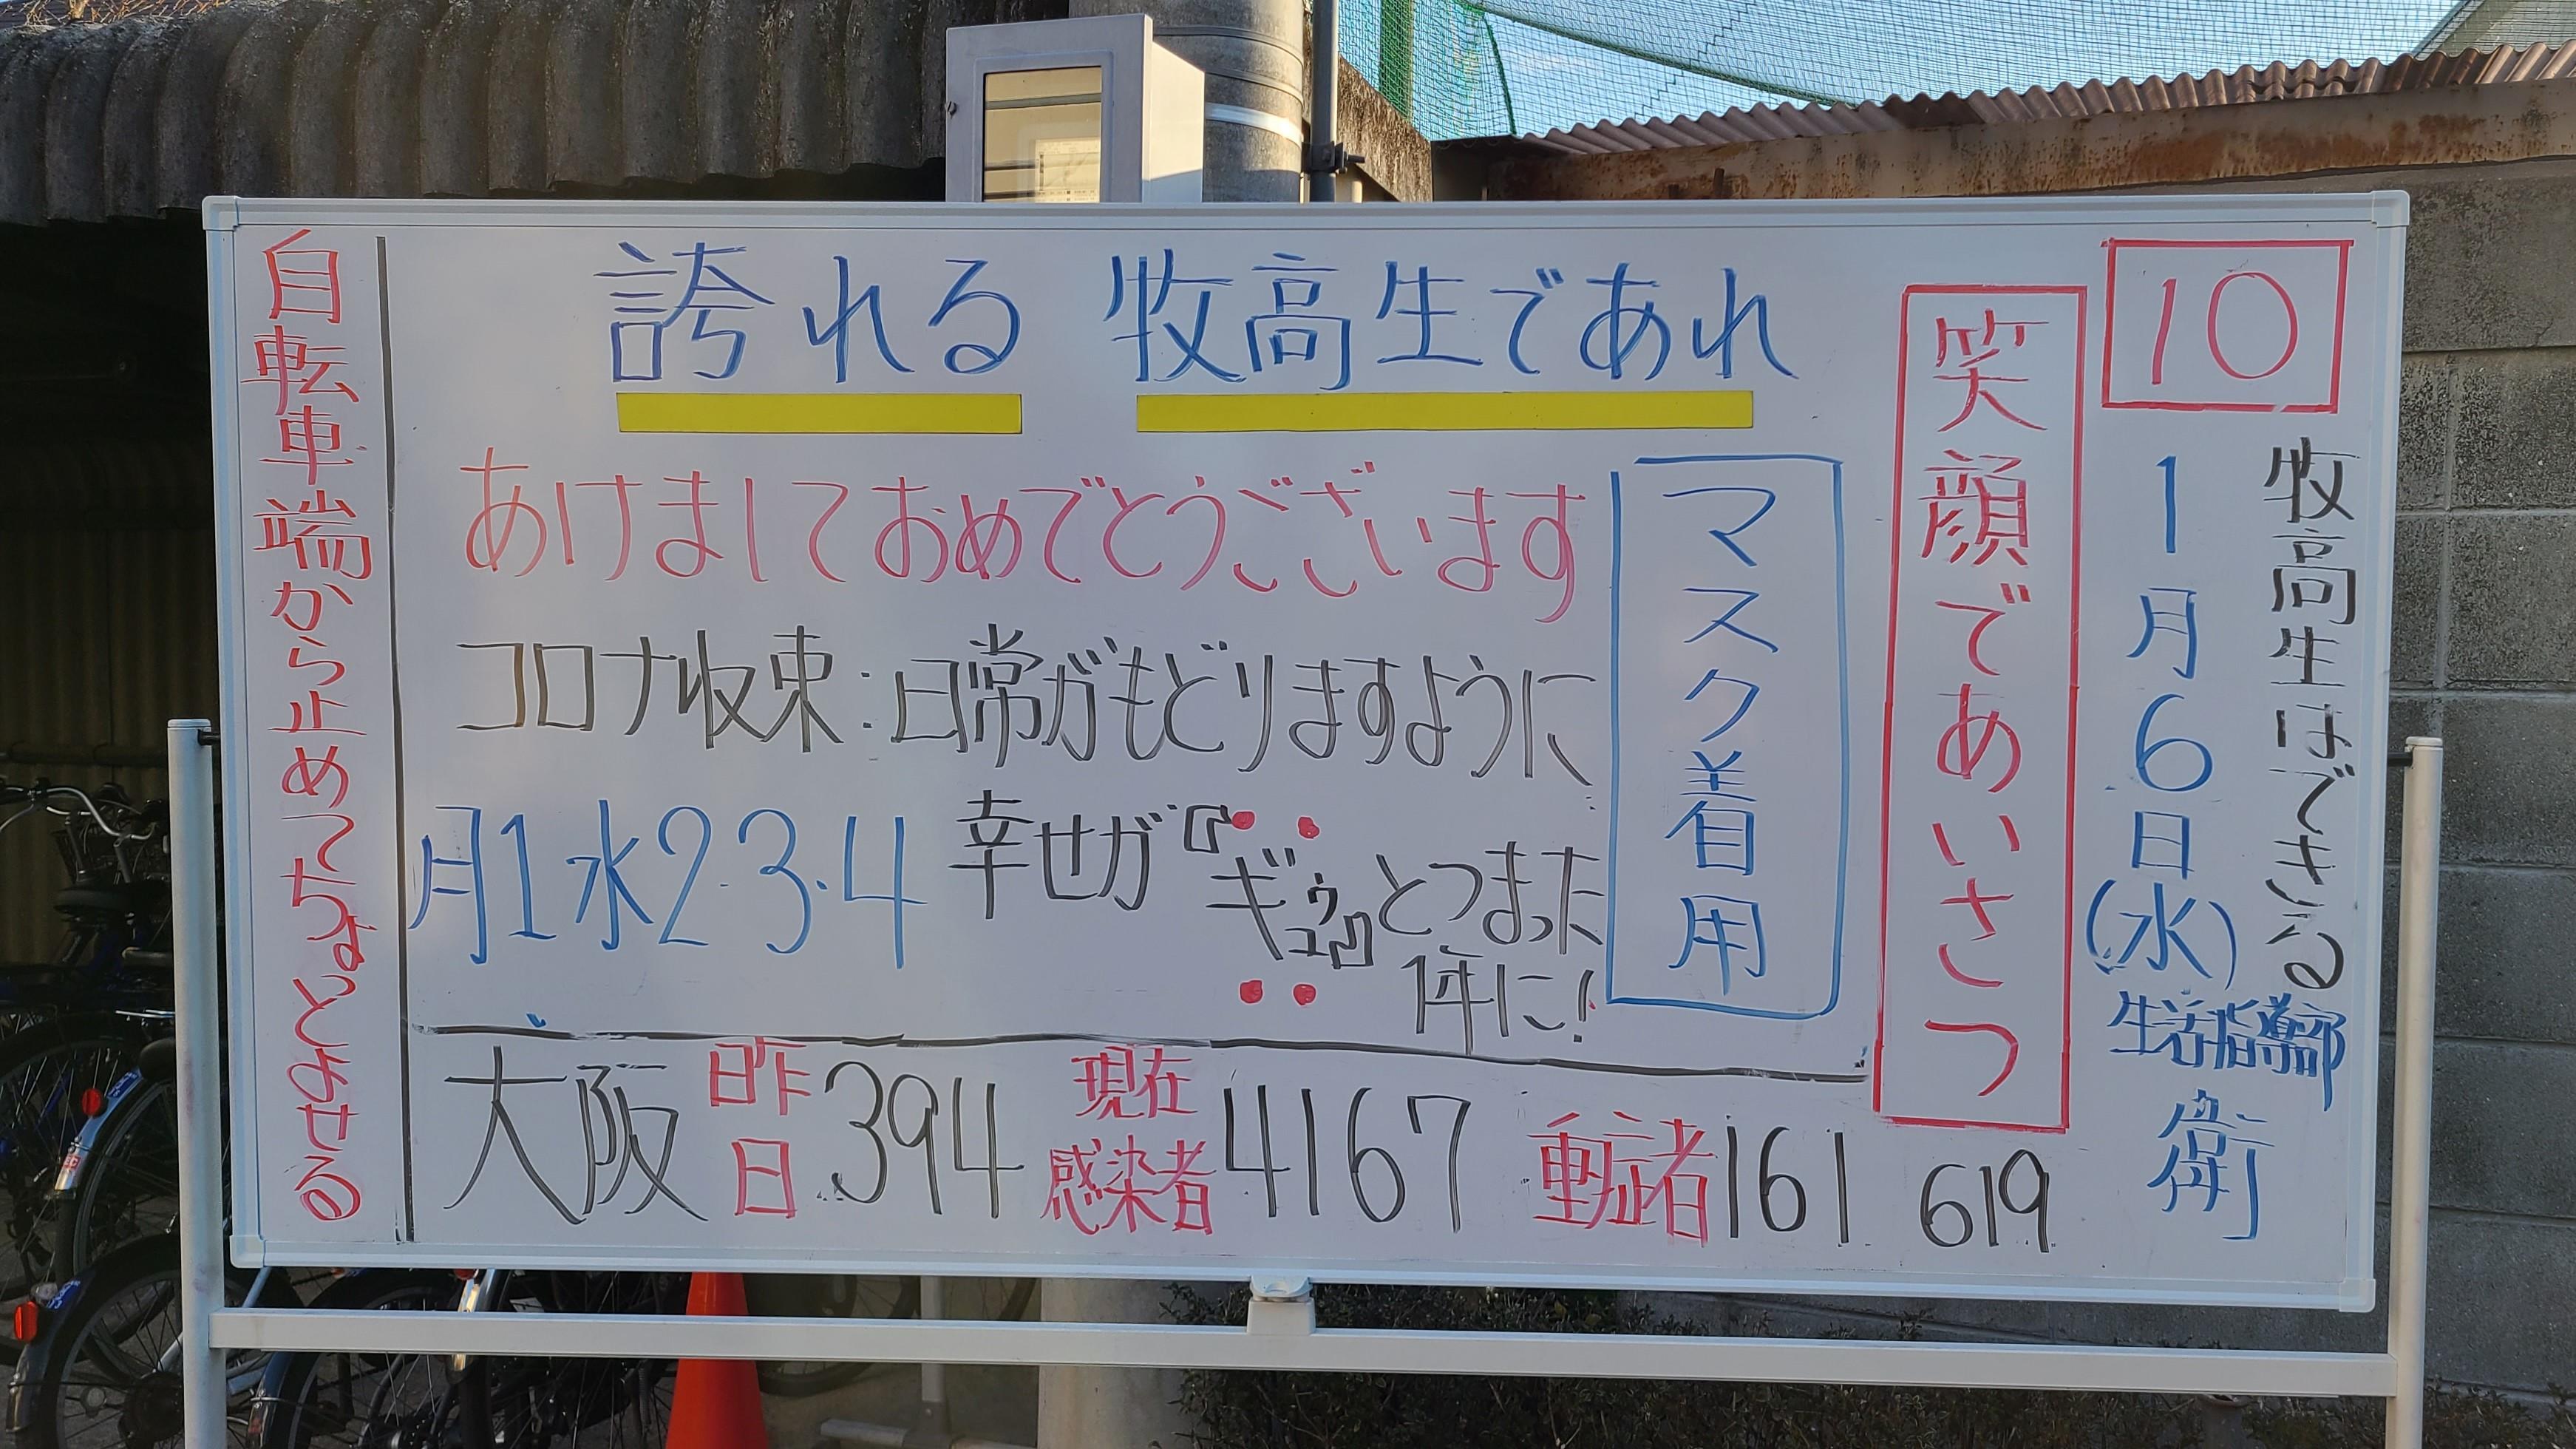 10
牧高生はできる
1月6日(水)
生活指導部
衛
笑顔であいさつ
誇れる 牧高生であれ
あけましておめでとうございます
マスク着用
コロナ収束:日常がもどりますように
月1水2·3·4
幸せが『ギュウ』とつまった
1年に!
大阪 昨日 394 現在感染者 4167 重症者 161 619
自転車端から止めてちょっとよせる